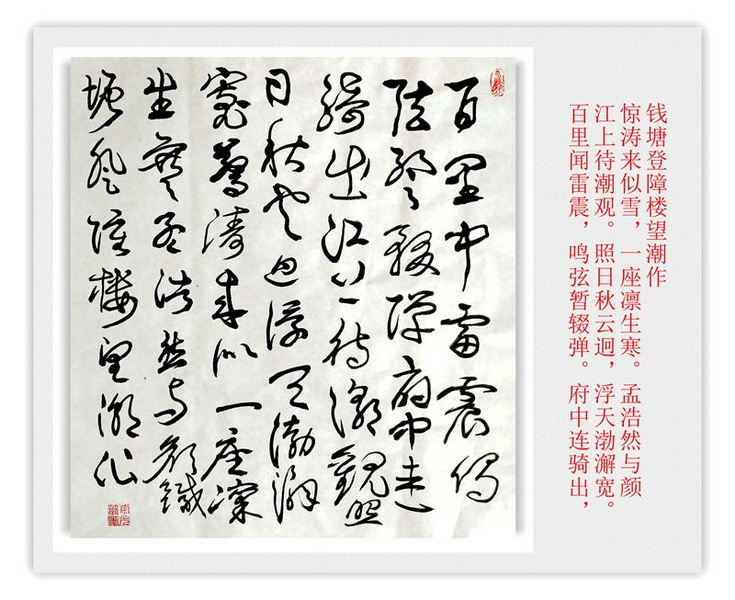 百里中雷震鸣
弦暂辍弹府中连
騎出江上待潮觀照
日秋云迥浮天渤澥
寬驚濤來似一座凜
生寒孟浩然与颜錢
塘登障樓望潮作
百里闻雷震，鸣弦暂辍弹。府中连骑出，
江上待潮观。照日秋云迥，浮天渤澥宽。
惊涛来似雪，一座凛生寒。孟浩然与颜
钱塘登障楼望潮作